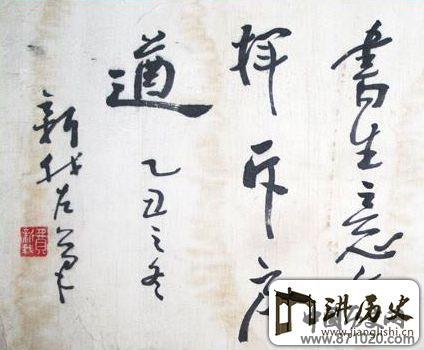 書生意
揮斥方
遒
乙丑之冬
新我左筆
讲历史
www.jianglishi.cn
www.871020.com